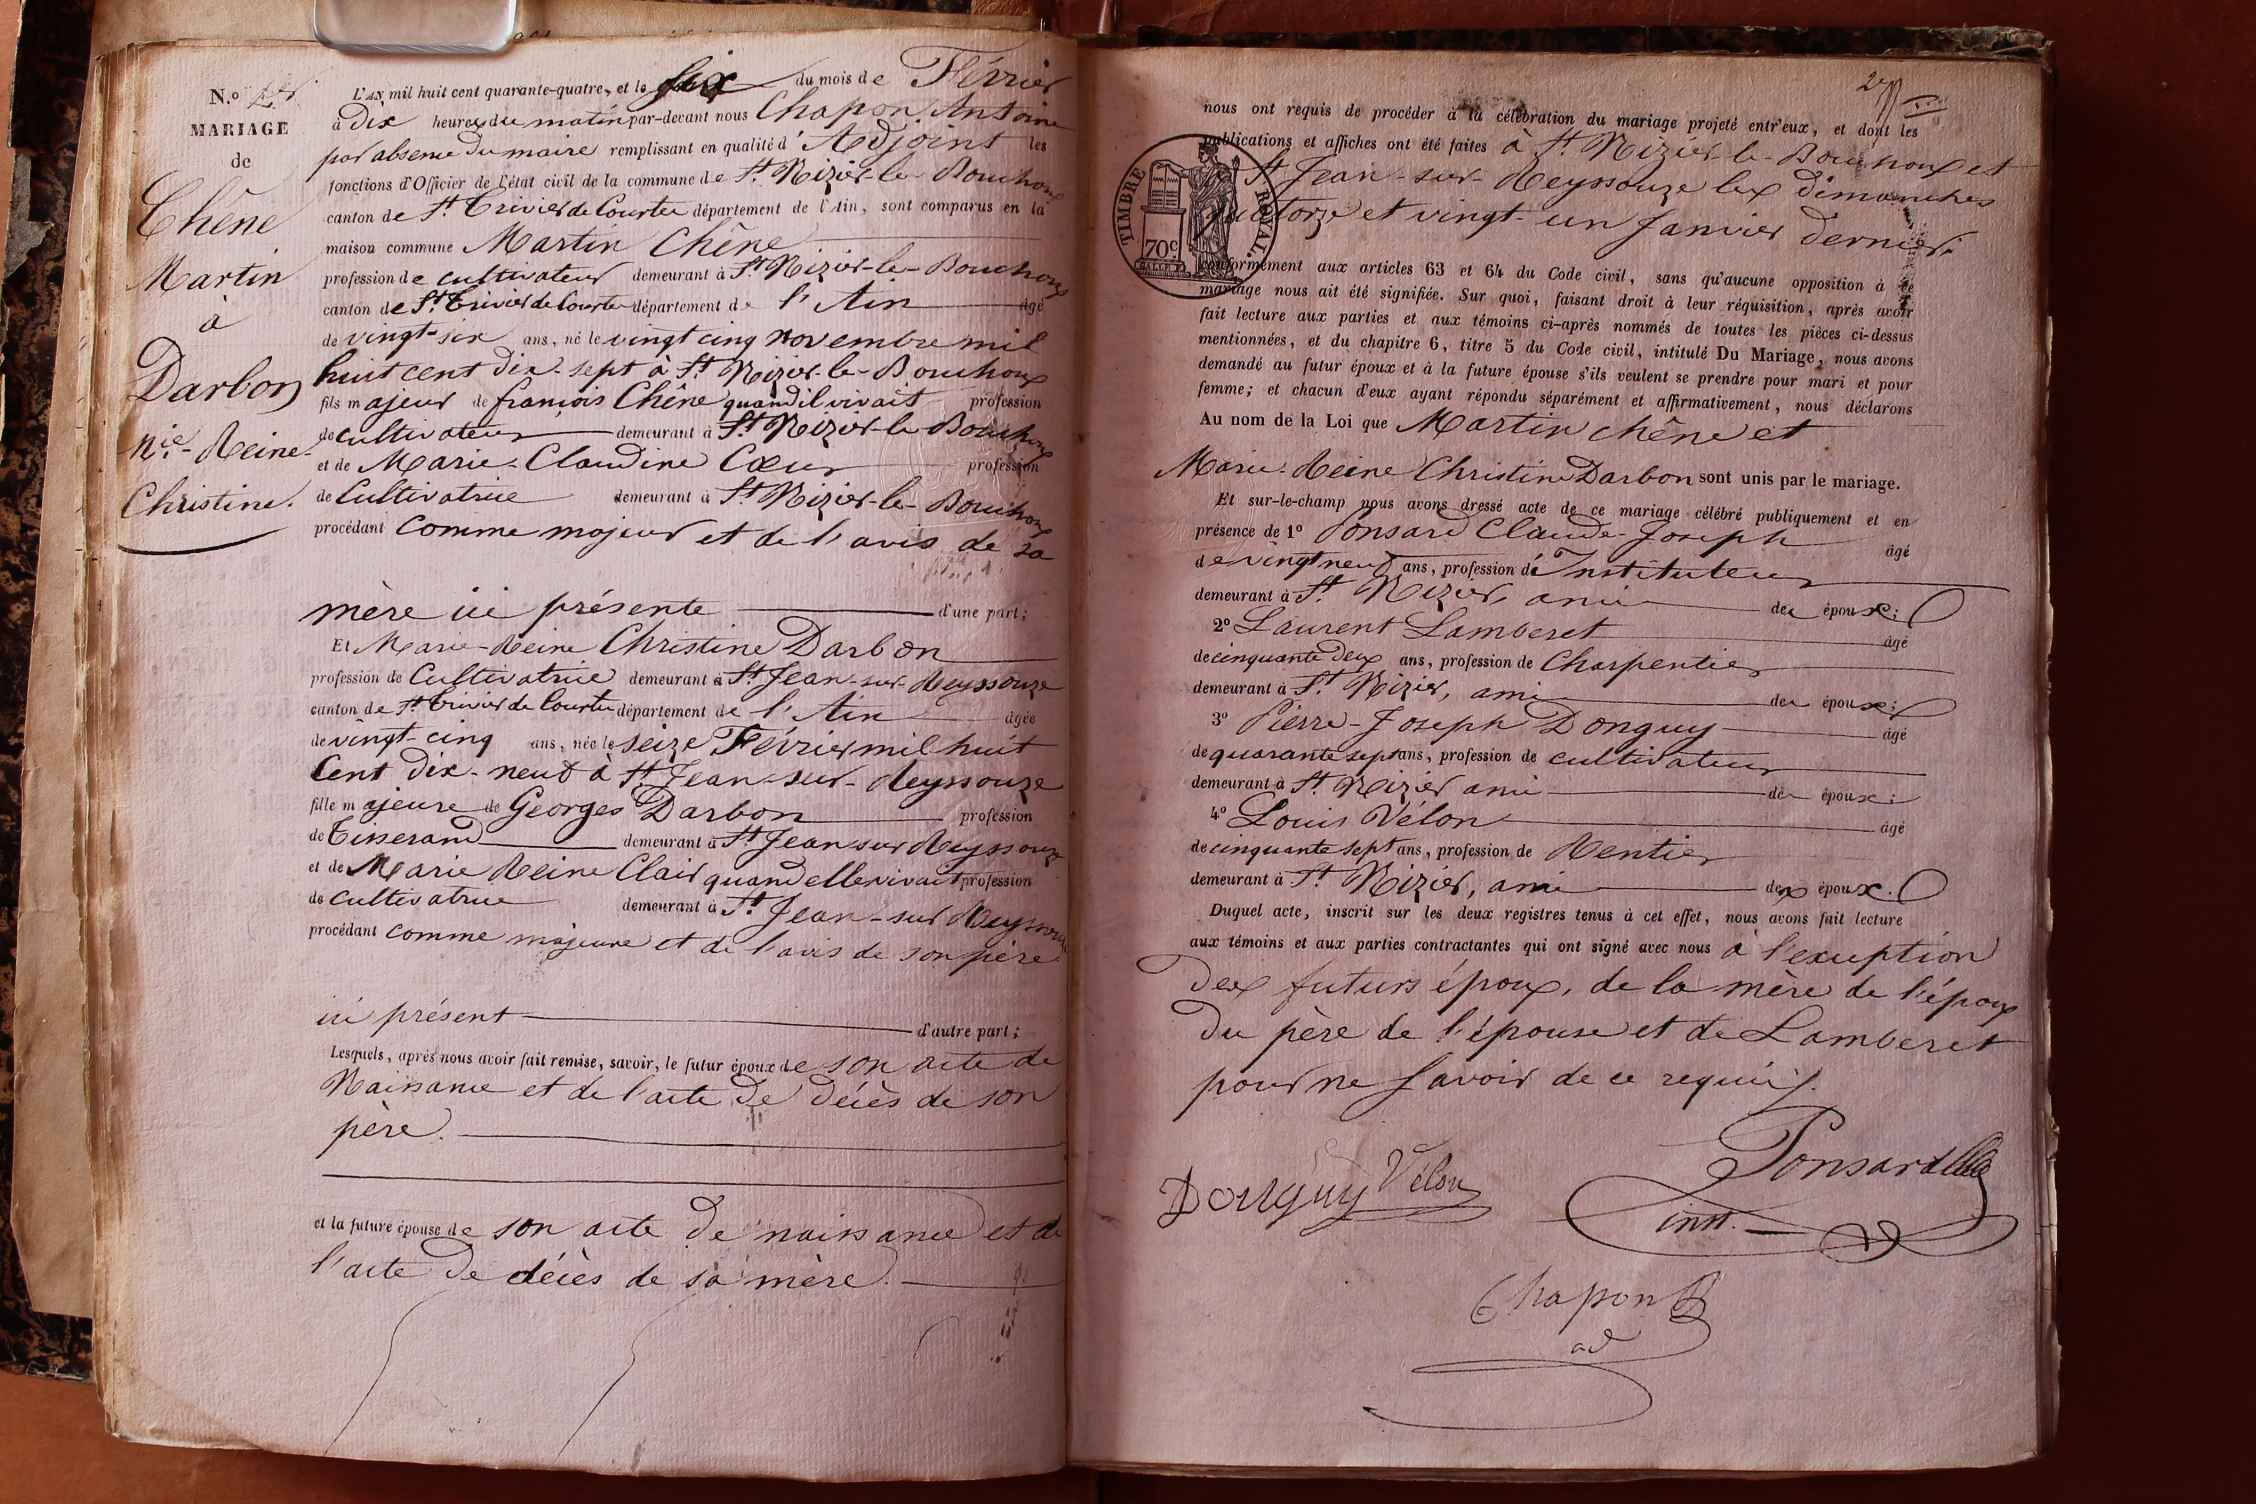 N.o
MARIAGE
de
Chêne
Martin
à
Darbon
Mie-Reine-
Christine.
L'AN mil huit cent quarante-quatre, et le six du mois de Février
à dix heures du matin par-devant nous Chapon Antoine
par absence du maire remplissant en qualité d'Adjoint les
fonctions d'Officier de l'état civil de la commune de St Nizier-le-Bouchoux
canton de St Trivier de Courtes département de l'Ain, sont comparus en la
maison commune Martin Chêne
profession de cultivateur demeurant à St Nizier-le-Bouchoux
canton de St Trivier de Courtes département de l'Ain âgé
de vingt-six ans, né le vingt cinq novembre mil
huit cent dix-sept à St Nizier-le-Bouchoux
fils majeur de françois Chêne quand il vivait profession
de cultivateur demeurant à St Nizier-le-Bouchoux
et de Marie-Claudine Cœur profession
de Cultivatrice demeurant à St Nizier-le-Bouchoux
procédant comme majeur et de l'avis de sa
mère ici présente d'une part;
Et Marie-Reine Christine Darbon
profession de Cultivatrice demeurant à St Jean-sur-Reyssouze
canton de St Trivier de Courtes département de l'Ain âgée
de vingt-cinq ans, née le seize Février mil huit
Cent dix-neuf à St Jean-sur-Reyssouze
fille majeure de Georges Darbon profession
de Tisserand demeurant à St Jean sur Reyssouze
et de Marie Reine Clair quand elle vivait profession
de cultivatrice demeurant à St Jean-sur Reyssouze
procédant comme majeure et de l'avis de son père
ici présent d'autre part;
Lesquels, après nous avoir fait remise, savoir, le futur époux de son acte de
Naissance et de l'acte de décès de son
père.
et la future épouse de son acte de naissance et de
l'acte de décès de sa mère.
nous ont requis de procéder à la célébration du mariage projeté entr'eux, et dont les
publications et affiches ont été faites à St Nizier-le-Bouchoux et
St Jean-sur-Reyssouze les dimanches
quatorze et vingt-un Janvier dernier.
TIMBRE ROYAL.
70c
conformément aux articles 63 et 64 du Code civil, sans qu'aucune opposition à ce
mariage nous ait été signifiée. Sur quoi, faisant droit à leur réquisition, après avoir
fait lecture aux parties et aux témoins ci-après nommés de toutes les pièces ci-dessus
mentionnées, et du chapitre 6, titre 5 du Code civil, intitulé Du Mariage, nous avons
demandé au futur époux et à la future épouse s'ils veulent se prendre pour mari et pour
femme; et chacun d'eux ayant répondu séparément et affirmativement, nous déclarons
Au nom de la Loi que Martin chêne et
Marie-Reine Christine Darbon sont unis par le mariage.
Et sur-le-champ nous avons dressé acte de ce mariage célébré publiquement et en
présence de 1o Ponsard Claude-Joseph âgé
de vingt neuf ans, profession d'Instituteur
demeurant à St Nizier, ami des époux;
2o Laurent Lamberet âgé
de cinquante deux ans, profession de Charpentier
demeurant à St Nizier, ami des époux;
3o Pierre-Joseph Donguy âgé
de quarante sept ans, profession de cultivateur
demeurant à St Nizier ami des époux;
4o Louis Vélon âgé
de cinquante sept ans, profession de Rentier
demeurant à St Nizier, ami des époux.
Duquel acte, inscrit sur les deux registres tenus à cet effet, nous avons fait lecture
aux témoins et aux parties contractantes qui ont signé avec nous à l'exception
des futurs époux, de la mère de l'époux
du père de l'épouse et de Lamberet
pour ne savoir de ce requis.
Donguy Vélon
Ponsard
inst.
Chapon
ad